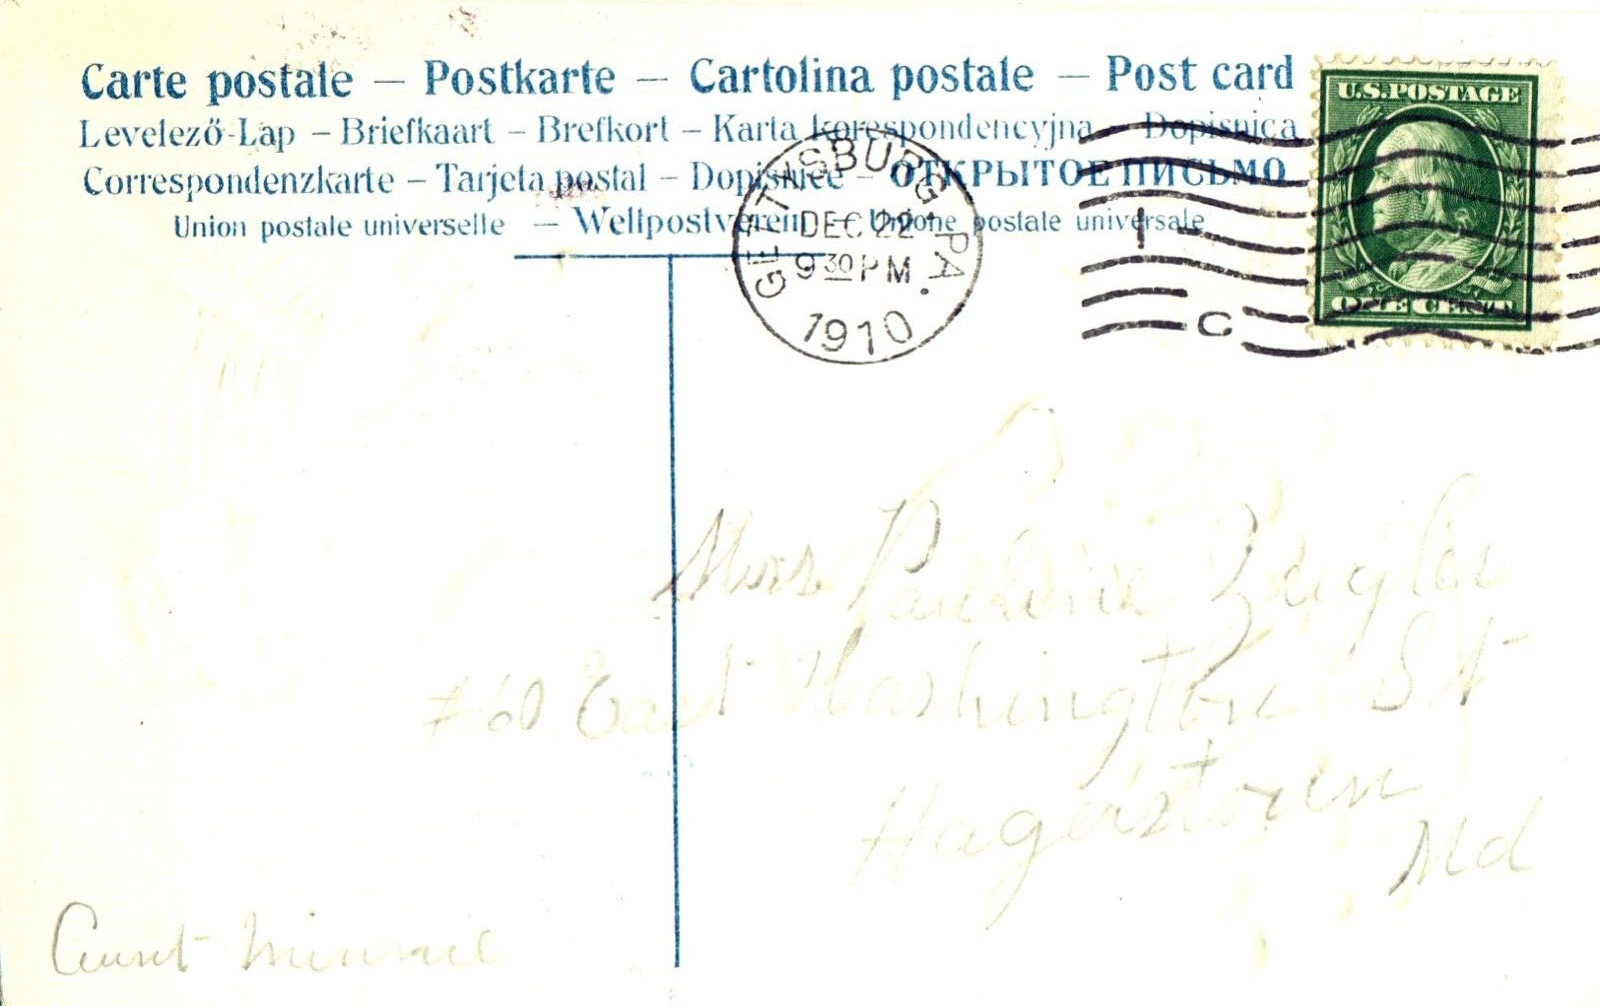 Carte postale – Postkarte – Cartolina postale – Post card
Levelező-Lap – Briefkaart – Brefkort – Karta korespondencyjna – Dopisnica
Correspondenzkarte – Tarjeta postal – Dopisnice – ОТКРЫТОЕ ПИСЬМО
Union postale universelle – Weltpostverein – Unione postale universale
GETTYSBURG, PA.
DEC 22
9 30 PM
1910
C
U.S. POSTAGE
ONE CENT
Miss Pauline Zeigler
#60 East Washington St
Hagerstown
Md
Aunt Minnie